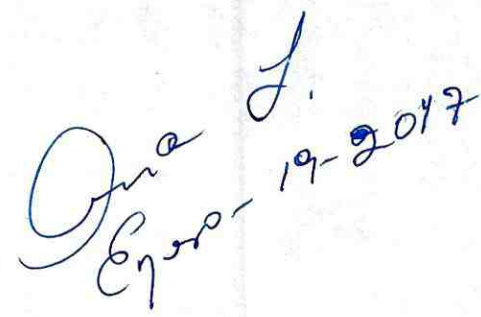 Ana L.
Enero - 19 - 2017